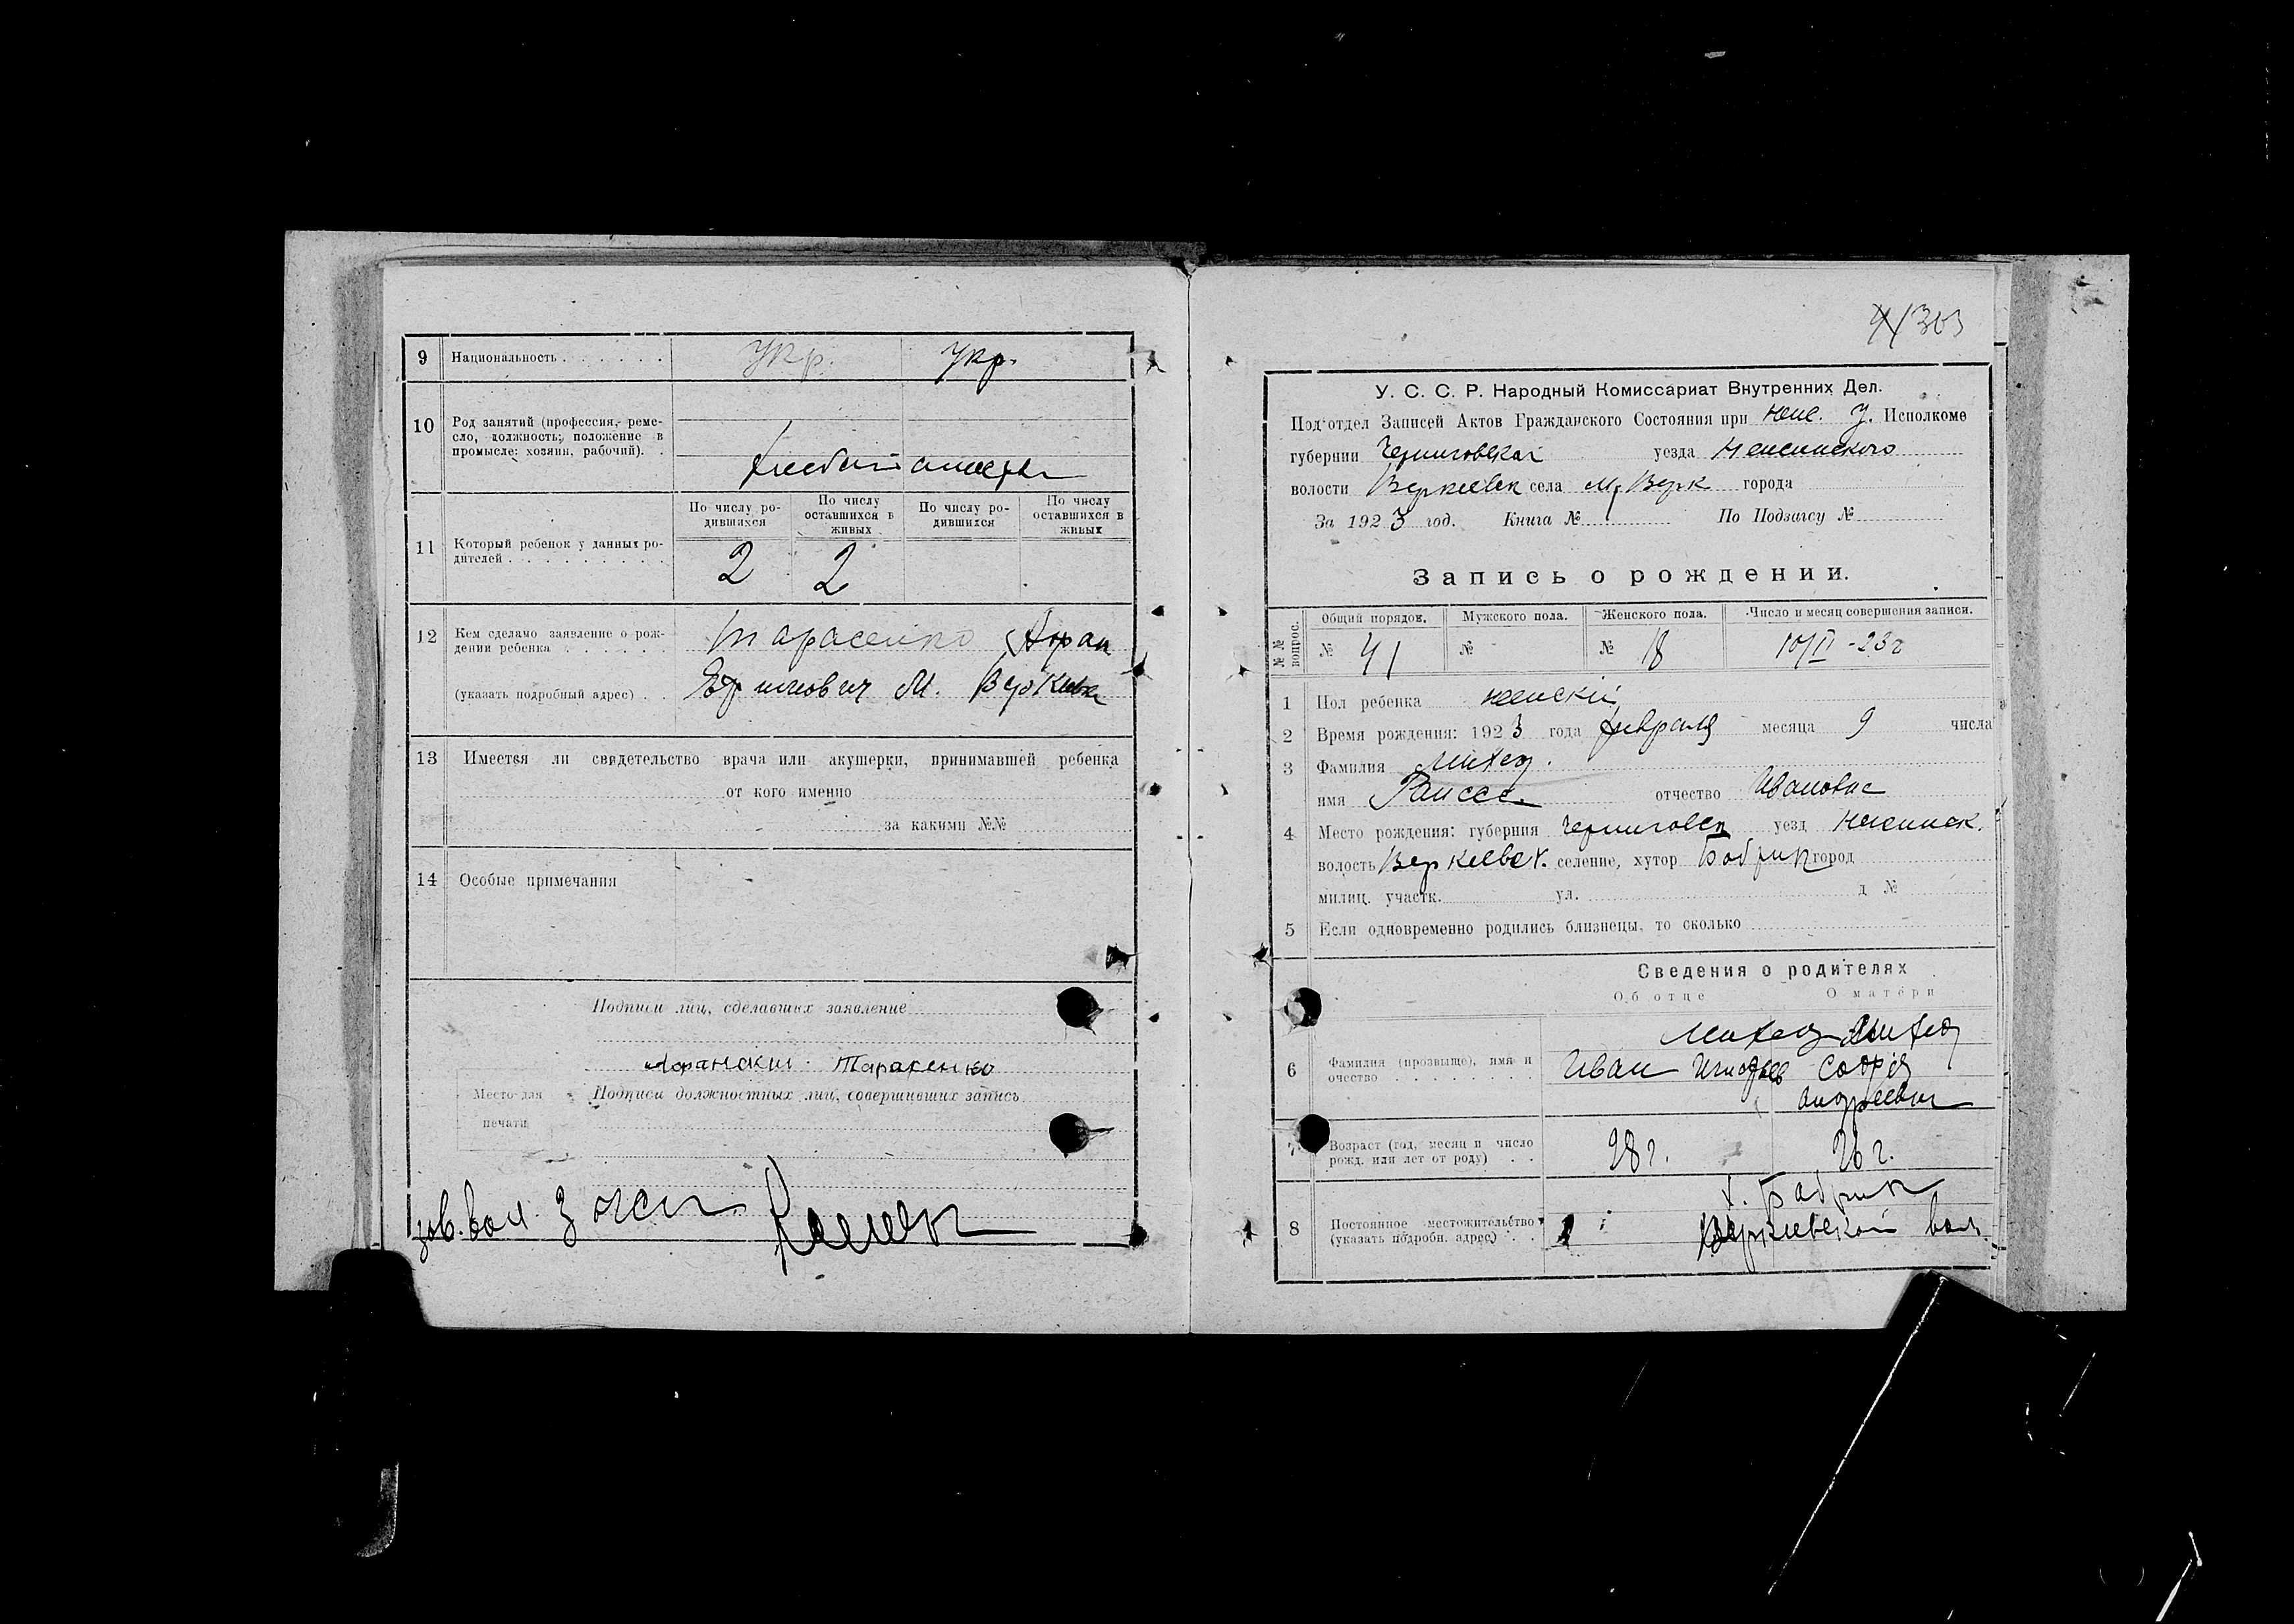 9 Национальность . . . . . . укр. укр.
10 Род занятий (профессия, реме-
сло, должность; положение в
промысле: хозяин, рабочий). .
11 Который ребенок у данных ро-
дителей . . . . . . . . .
По числу ро-
дившихся
По числу
оставшихся в
живых
По числу ро-
дившихся
По числу
оставшихся в
живых
2 2
12 Кем сделано заявление о рож-
дении ребенка . . . . . . Тарасенко Афан
(указать подробный адрес) . . М. Веркиевка
13 Имеется ли свидетельство врача или акушерки, принимавшей ребенка
от кого именно
за какими №№
14 Особые примечания
Подписи лиц, сделавших заявление
Тарасенко
Место для
печати
Подписи должностных лиц, совершивших запись
зав. вол. Загсом
41 303
У. С. С. Р. Народный Комиссариат Внутренних Дел.
Подотдел Записей Актов Гражданского Состояния при Неж. У. Исполкоме
губернии Черниговской уезда Нежинского
волости Веркиевск села М. Верк города
За 1923 год. Книга № По Подзагсу №
Запись о рождении.
№№ вопрос.
Общий порядок. Мужского пола. Женского пола. Число и месяц совершения записи.
№ 41 № № 18 10/II -23г
1 Пол ребенка женский
2 Время рождения: 1923 года февраля месяца 9 числа
3 Фамилия Михед.
имя Раисса отчество Ивановна
4 Место рождения: губерния Черниговск уезд Нежинск.
волость Веркиевск. селение, хутор Бобрик город
милиц. участк. ул. д №
5 Если одновременно родились близнецы, то сколько
Сведения о родителях
Об отце О матери
6 Фамилия (прозвище), имя и
очество . . . . . . . . .
Михед Михед
Иван София
Андреевна
7 Возраст (год, месяц и число
рожд. или лет от роду) . .
28 г. 26 г.
8 Постоянное местожительство
(указать подробн. адрес) . .
х. Бобрик
Веркиевской вол.